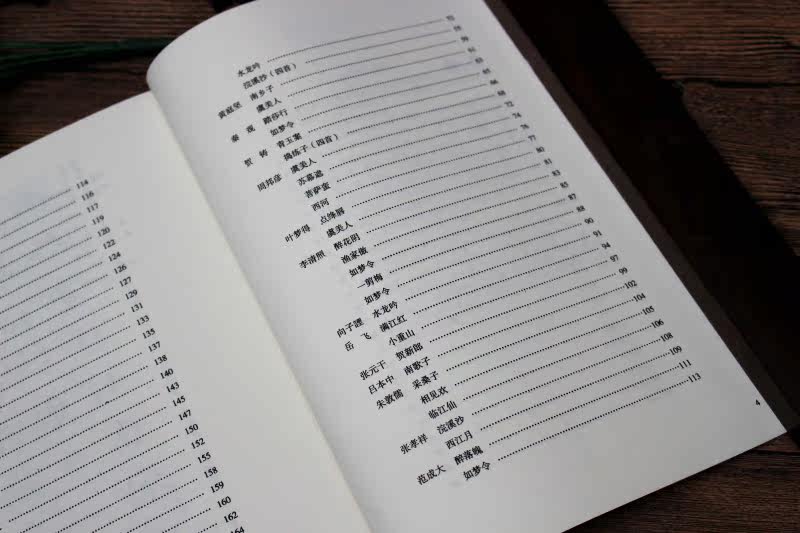 114
116
117
119
120
122
124
126
127
129
131
133
135
137
138
140
143
145
147
150
152
155
158
159
160
162
164
水龙吟
浣溪沙（四首）
黄庭坚 南乡子
虞美人 61
秦 观 踏莎行 63
如梦令 65
贺 铸 青玉案 66
捣练子（四首） 68
周邦彦 虞美人 72
苏幕遮 74
菩萨蛮 76
西河 77
叶梦得 点绛唇 80
虞美人 81
李清照 醉花阴 83
渔家傲 85
如梦令 87
一剪梅 88
如梦令 90
向子諲 水龙吟 91
岳 飞 满江红 94
小重山 97
张元干 贺新郎 99
吕本中 南歌子 102
朱敦儒 采桑子 104
相见欢 105
临江仙 106
张孝祥 浣溪沙 108
西江月 109
范成大 醉落魄 111
如梦令 113
4